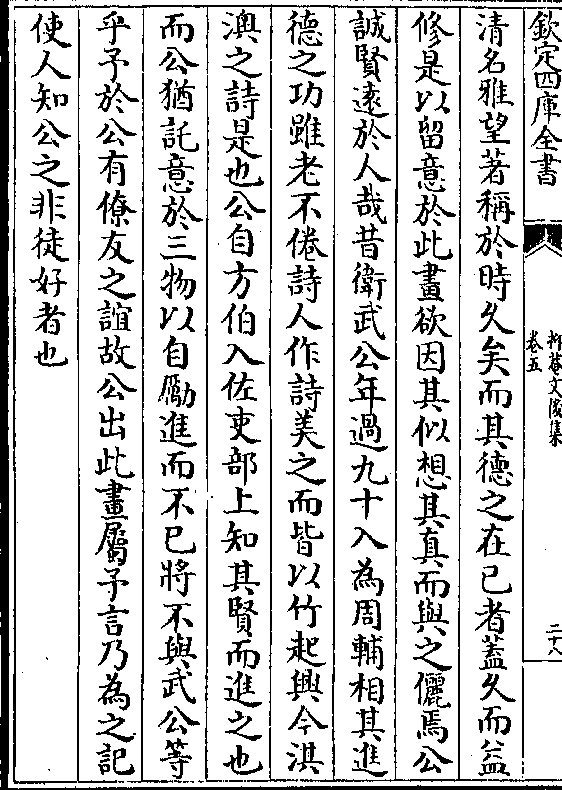 欽定四庫全書
抑菴文後集
卷五
二十八
清名雅望著稱於時久矣而其德之在已者蓋久而益
修是以留意於此畫欲因其似想其真而與之儷焉公
誠賢遠於人哉昔衛武公年過九十入為周輔相其進
德之功雖老不倦詩人作詩美之而皆以竹起興今淇
澳之詩是也公自方伯入佐吏部上知其賢而進之也
而公猶託意於三物以自勵進而不已將不與武公等
乎予於公有僚友之誼故公出此畫屬予言乃為之記
使人知公之非徒好者也